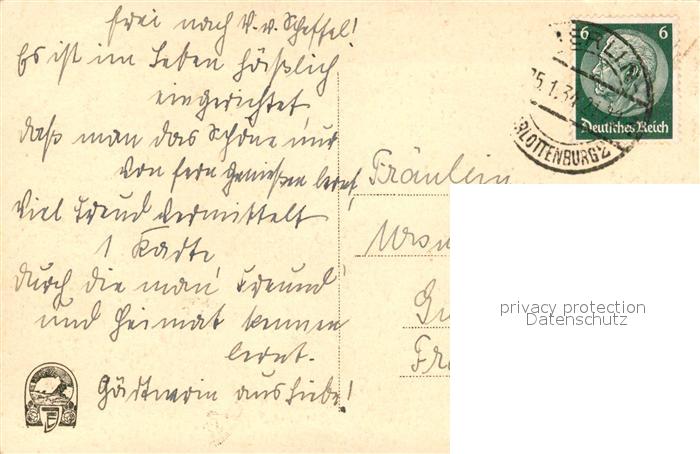 frei nach V. v. Scheffel!
Es ist im Leben häßlich
eingerichtet,
daß man das Schöne nur
von fern genießen lernt
viel Freud vermittelt
1 Karte
durch die man Freund
und Heimat kennen
lernt.
Gärtnerin aus Liebe!
Fräulein
Ursu
Fr
6 6
Deutsches Reich
BERLIN
25.1.34
RLOTTENBURG 2
privacy protection
Datenschutz